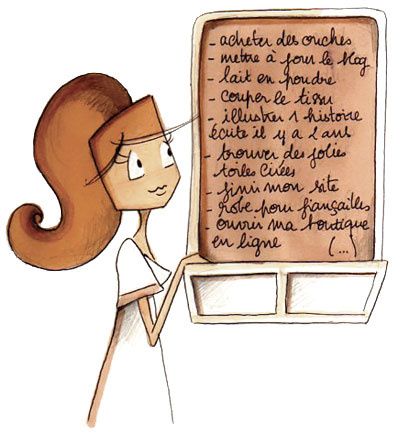 - acheter des couches
- mettre à jour le blog
- lait en poudre
- couper le tissu
- illustrer 1 histoire
écrite il y a 2 ans
- trouver des jolies
toiles cirées
- finir mon site
- robe pour fiançailles
- ouvrir ma boutique
en ligne (...)